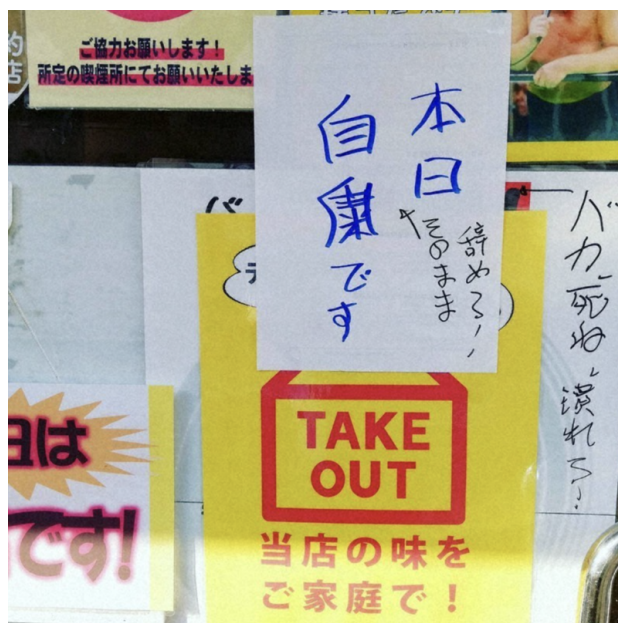 ご協力お願いします!
所定の喫煙所にてお願いいたしま
約
店
本日
自粛です
そのまま
辞めろ!
バカ、死ね、
潰れろ!
バ
テ
日は
です!
TAKE
OUT
当店の味を
ご家庭で!